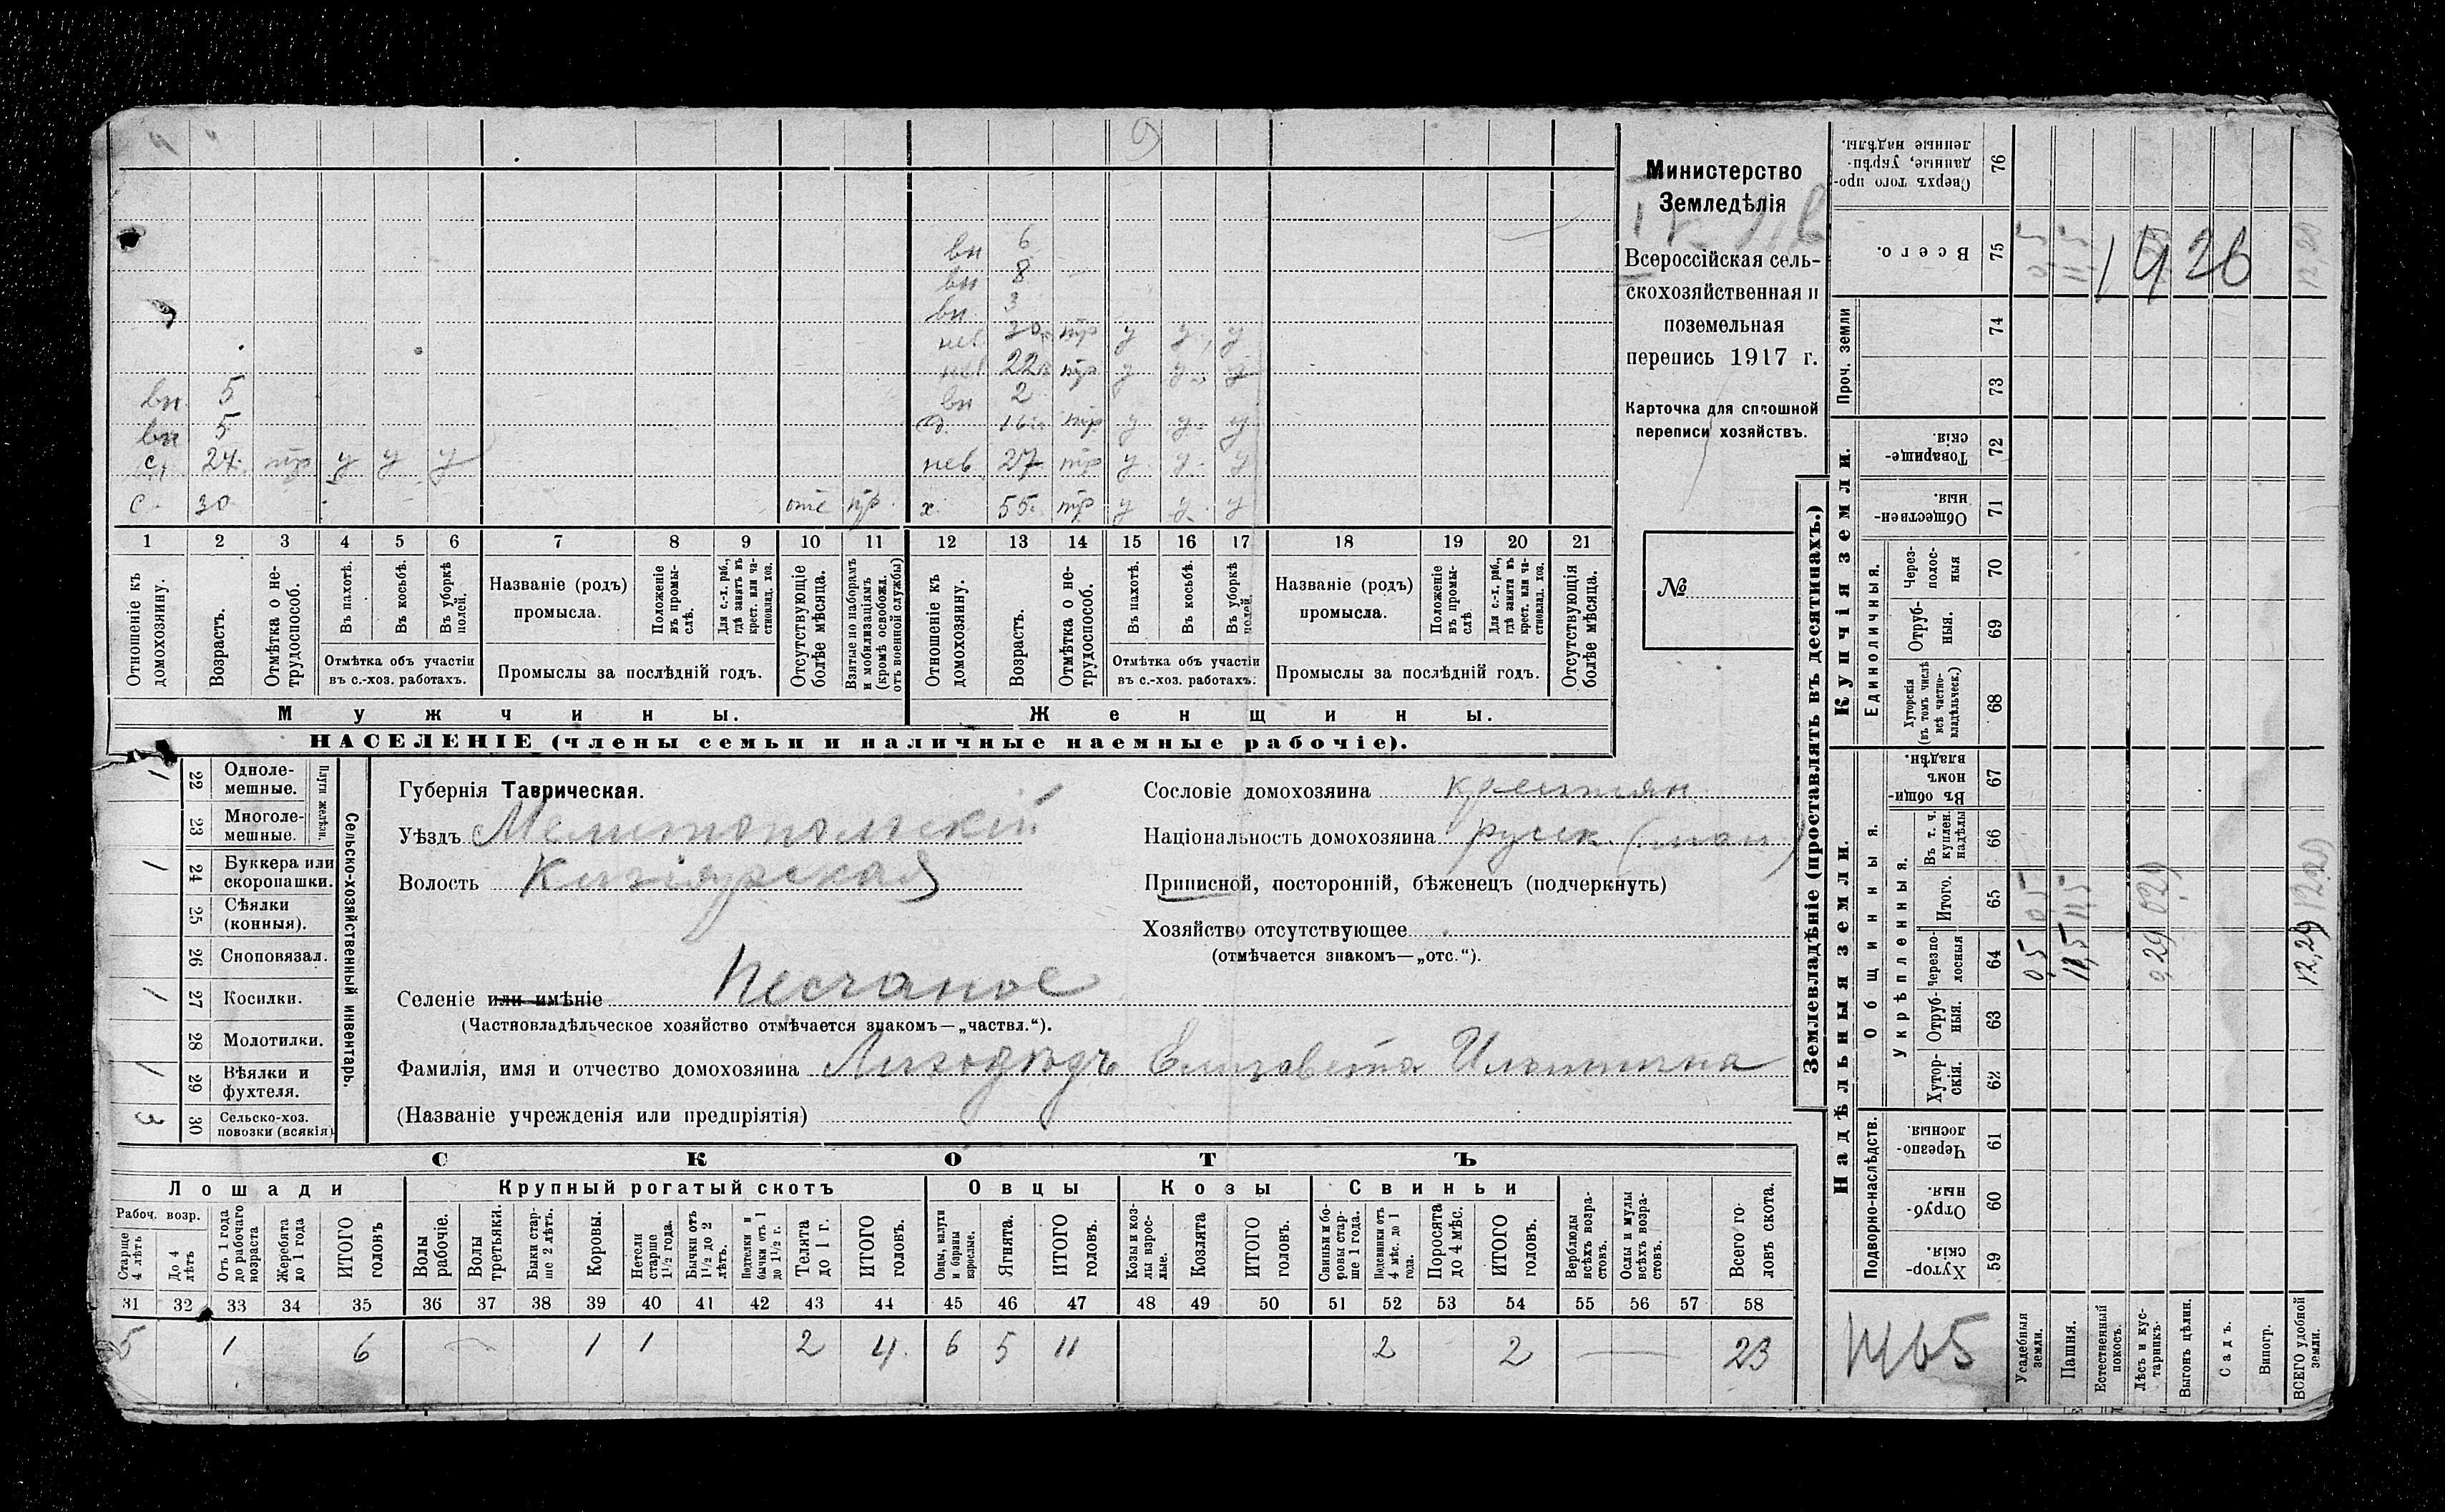 вн 6
вн 8
вн 3
нев 20 тр у у у
нев 22 тр у у у
вн 5 вн 2
вн 5 д. 16 тр у у у
с 24 тр у у у нев 27 тр у у у
с 30 отс тр х 55 тр у у у
1 2 3 4 5 6 7 8 9 10 11 12 13 14 15 16 17 18 19 20 21
Отношеніе къ домохозяину.
Возрастъ.
Отмѣтка о не-трудоспособ.
Въ пахотѣ.
Въ косьбѣ.
Въ уборкѣ полей.
Отмѣтка объ участіи
въ с.-хоз. работахъ.
Названіе (родъ)
промысла.
Положеніе въ промы-слѣ.
Для с.-х. раб., гдѣ занятъ въ крест. или ча-стновлад. хоз.
Промыслы за послѣдній годъ.
Отсутствующіе болѣе мѣсяца.
Взятые по наборамъ и мобилизаціямъ (кромѣ освобожд. отъ военной службы)
Отношеніе къ домохозяину.
Возрастъ.
Отмѣтка о не-трудоспособ.
Въ пахотѣ.
Въ косьбѣ.
Въ уборкѣ полей.
Отмѣтка объ участіи
въ с.-хоз. работахъ.
Названіе (родъ)
промысла.
Положеніе въ промы-слѣ
Для с.-х. раб., гдѣ занята въ крест. или ча-стновлад. хоз.
Промыслы за послѣдній годъ.
Отсутствующія болѣе мѣсяца.
Мужчины. Женщины.
НАСЕЛЕНІЕ (члены семьи и наличные наемные рабочіе).
Министерство
Земледѣлія
Всероссійская сель-
скохозяйственная и
поземельная
перепись 1917 г.
Карточка для сплошной
переписи хозяйствъ.
№
Сельско-хозяйственный инвентарь.
Плуги желѣзн.
1 22 Одноле-мешные.
23 Многоле-мешные.
1 24 Буккера или скоропашки.
25 Сѣялки (конныя).
26 Сноповязал.
1 27 Косилки.
28 Молотилки.
1 29 Вѣялки и фухтеля.
3 30 Сельско-хоз. повозки (всякія).
Губернія Таврическая.
Уѣздъ Мелитопольскій
Волость Кизіярская
Селеніе или имѣніе Песчаное
(Частновладѣльческое хозяйство отмѣчается знакомъ—„частвл.“).
Фамилія, имя и отчество домохозяина Лиходѣдъ Елизавета
(Названіе учрежденія или предпріятія)
Сословіе домохозяина крестьян
Національность домохозяина русск.
Приписной, посторонній, бѣженецъ (подчеркнуть)
Хозяйство отсутствующее
(отмѣчается знакомъ—„отс.“).
СКОТЪ
Лошади Крупный рогатый скотъ Овцы Козы Свиньи
Рабоч. возр.
Старше 4 лѣтъ
До 4 лѣтъ
Отъ 1 года до рабочаго возраста
Жеребята до 1 года
ИТОГО головъ
Волы рабочіе.
Волы третьяки.
Быки стар-ше 2 лѣтъ.
Коровы.
Нетели старше 1½ года.
Бычки отъ 1½ до 2 лѣтъ.
Подтелки и бычки отъ 1 до 1½ г.
Телята до 1 г.
ИТОГО головъ.
Овцы, валухи и бараны взрослые.
Ягнята.
ИТОГО головъ.
Козы и коз-лы взрос-лые.
Козлята
ИТОГО головъ.
Свиньи и бо-ровы стар-ше 1 года.
Подсвинки отъ 4 мѣс. до 1 года.
Поросята до 4 мѣс.
ИТОГО головъ.
Верблюды всѣхъ возра-стовъ.
Ослы и мулы всѣхъ возра-стовъ.
Всего го-ловъ скота.
31 32 33 34 35 36 37 38 39 40 41 42 43 44 45 46 47 48 49 50 51 52 53 54 55 56 57 58
5 1 6 1 1 2 4 6 5 11 2 2 23
Землевладѣніе (проставлять въ десятинахъ.)
Надѣльныя земли. Купчія земли.
Сверхъ того про-данные, укрѣп-ленные надѣлы. 76
Всего. 75 0,5 11,5 12,29
1926
Проч. земли 74 73
Товарище-скія. 72
Обществен-ныя. 71
Единоличныя.
Через-полос-ныя 70
Отруб-ныя. 69
Хуторскія (въ томъ числѣ всѣ частно-владѣльческ.) 68
Въ общи-номъ владѣн. 67
Общинныя.
Укрѣпленныя.
Въ т. ч. куплен. надѣлы 66
Итого. 65 0,5 11,5 0,29 12,29
Черезпо-лосныя 64 0,5 11,5 0,29 12,29
Отруб-ныя. 63
Хутор-скія. 62
Подворно-наслѣдств.
Черезпо-лосныя. 61
Отруб-ныя. 60
Хутор-скія 59
Усадебныя земли.
Пашня.
Естественный покосъ.
Лѣсъ и кус-тарникъ.
Выгонъ цѣлин.
Садъ.
Виногр.
ВСЕГО удобной земли.